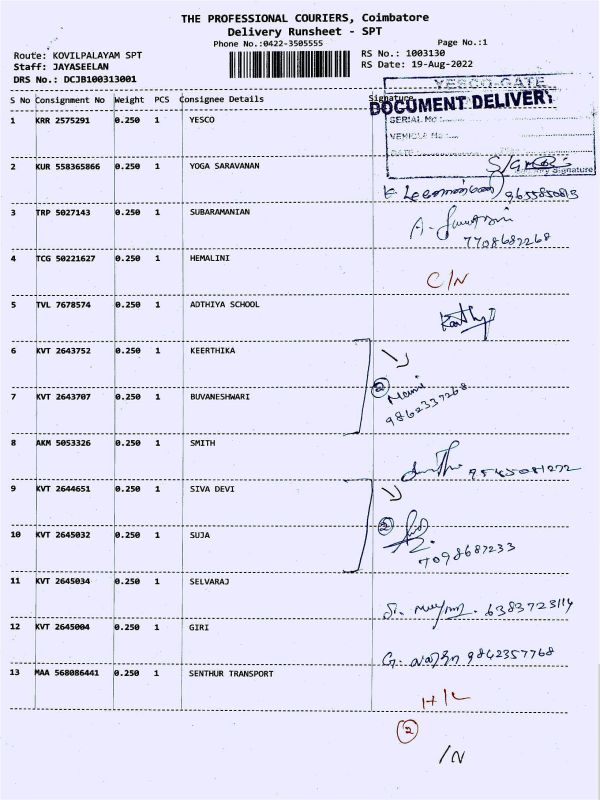 THE PROFESSIONAL COURIERS, Coimbatore
Delivery Runsheet - SPT
Phone No.:0422-3505555 Page No.:1
Route: KOVILPALAYAM SPT RS No.: 1003130
Staff: JAYASEELAN RS Date: 19-Aug-2022
DRS No.: DCJB100313001
YESCO-GATE
DOCUMENT DELIVERY
SERIAL No :
VEHICLE No :
DATE
Signature
S No Consignment No Weight PCS Consignee Details Signature
1 KRR 2575291 0.250 1 YESCO
2 KUR 558365866 0.250 1 YOGA SARAVANAN 9655850813
3 TRP 5027143 0.250 1 SUBARAMANIAN A. 7708687268
4 TCG 50221627 0.250 1 HEMALINI C/N
5 TVL 7678574 0.250 1 ADTHIYA SCHOOL
6 KVT 2643752 0.250 1 KEERTHIKA
7 KVT 2643707 0.250 1 BUVANESHWARI 2 Mani 9862337268
8 AKM 5053326 0.250 1 SMITH
9 KVT 2644651 0.250 1 SIVA DEVI
10 KVT 2645032 0.250 1 SUJA 2 7098687233
11 KVT 2645034 0.250 1 SELVARAJ
12 KVT 2645004 0.250 1 GIRI G. 9842357768
13 MAA 568086441 0.250 1 SENTHUR TRANSPORT
2
/N